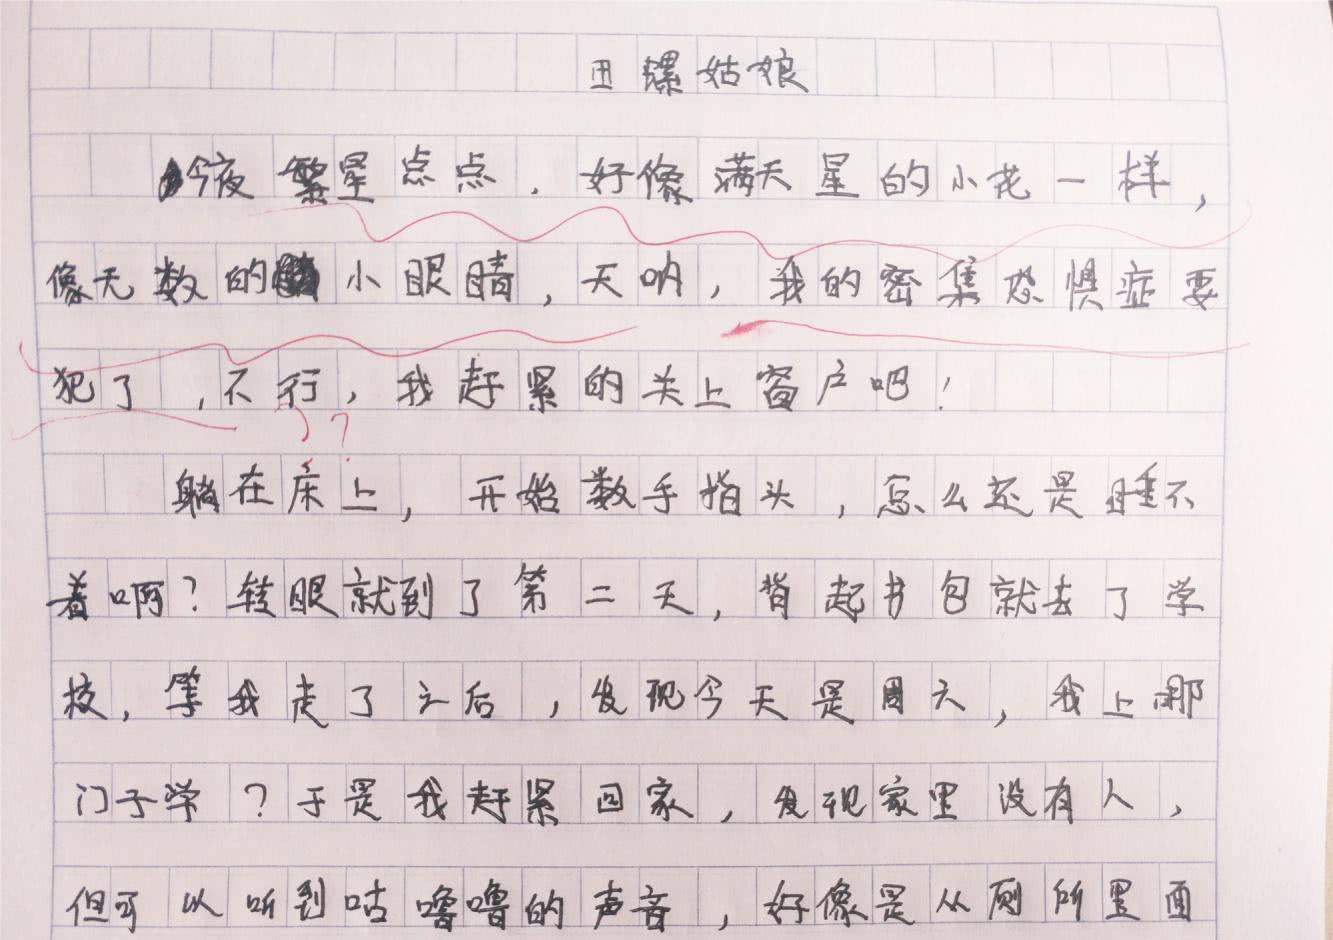 田螺姑娘
今夜繁星点点.好像满天星的小花一样,
像无数的小眼睛,天呐,我的密集恐惧症要
犯了,不行,我赶紧的关上窗户吧!
?
躺在床上,开始数手指头,怎么还是睡不
着啊?转眼就到了第二天,背起书包就去了学
校,等我走了之后,发现今天是周六,我上哪
门子学?于是我赶紧回家,发现家里没有人,
但可以听到咕噜噜的声音,好像是从厕所里面